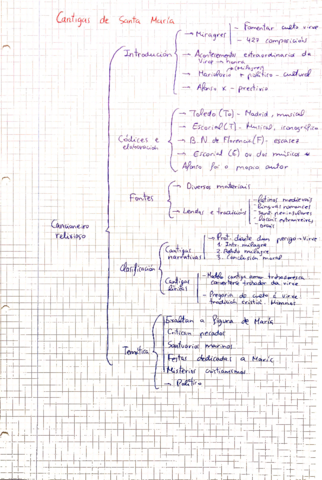 Cantigas de Santa María
Cancioneiro relixioso
Introducción
→ Miragres
- Fomentar culto virxe
- 427 composicións
→ Acontecemento extraordinario da Virxe en honra
(milagres)
→ Mariolóxio + político - cultural
→ Afonso X - prestixio
Códices e elaboración
→ Toledo (To) - Madrid, musical
→ Escorial (T) - Musical, iconográfico
→ B.N de Florencia (F) - escasez
→ Escorial (E) ou dos músicos
Afonso foi o maior autor
Fontes
→ Diversos materiais
→ Lendas e tradicións
Latinas medievais
Linguas romances
peninsulares
estranxeiros
Orais
Clasificación
Cantigas narrativas
→ Prot. diante dun perigo → Virxe
1. Intr. milagre
2. Relato milagre
3. Conclusión moral
Cantigas líricas
- Modelo cantiga amor trobadoresca
trobador da virxe
- Pregaria de culto á virxe
tradición cristiá. Himnos.
Temática
Exaltan a figura de María
Critican pecados
Santuarios marianos
Festas dedicadas a María
Misterios cristianismo
→ Político